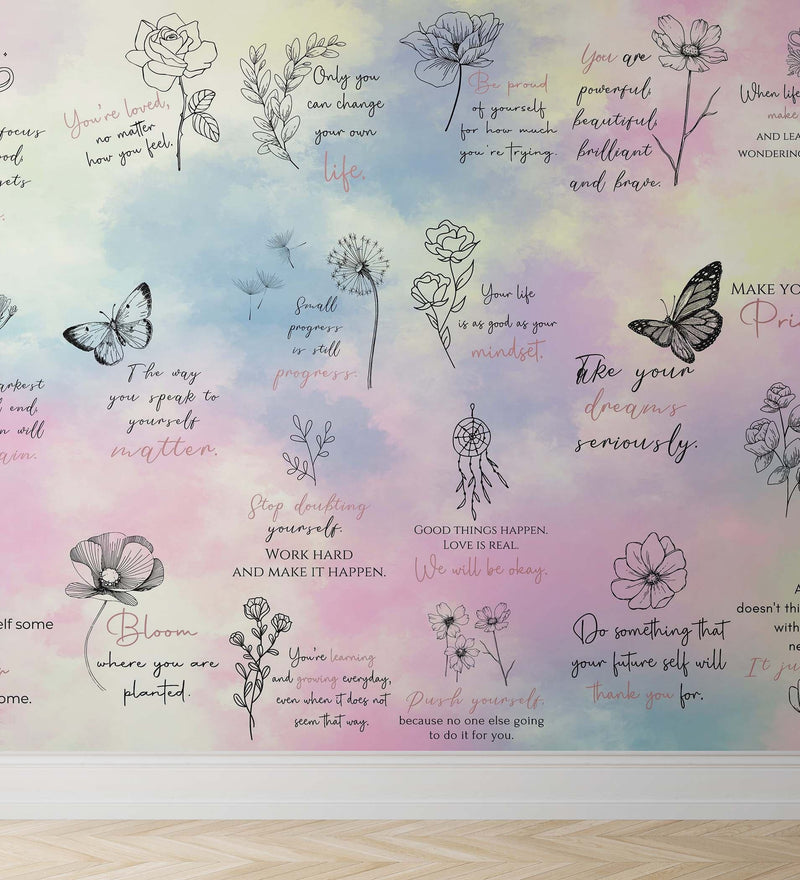 focus
You're loved,
no matter
how you feel.
Only you
can change
your own
life.
Be proud
of yourself
for how much
you're trying.
You are
powerful,
beautiful,
brilliant
and brave.
When life
make
AND LEA
WONDERING
The way
you speak to
yourself
matter.
Small
progress
is still
progress.
Your life
is as good as your
mindset.
Take your
dreams
seriously.
MAKE YO
Pri
arkest
end,
n will
ain.
Stop doubting
yourself.
WORK HARD
AND MAKE IT HAPPEN.
GOOD THINGS HAPPEN.
LOVE IS REAL.
We will be okay.
elf some
ome.
Bloom
where you are
planted.
You're learning
and growing everyday,
even when it does not
seem that way.
Push yourself,
because no one else going
to do it for you.
Do something that
your future self will
thank you for.
A
doesn't thi
with
ne
It ju